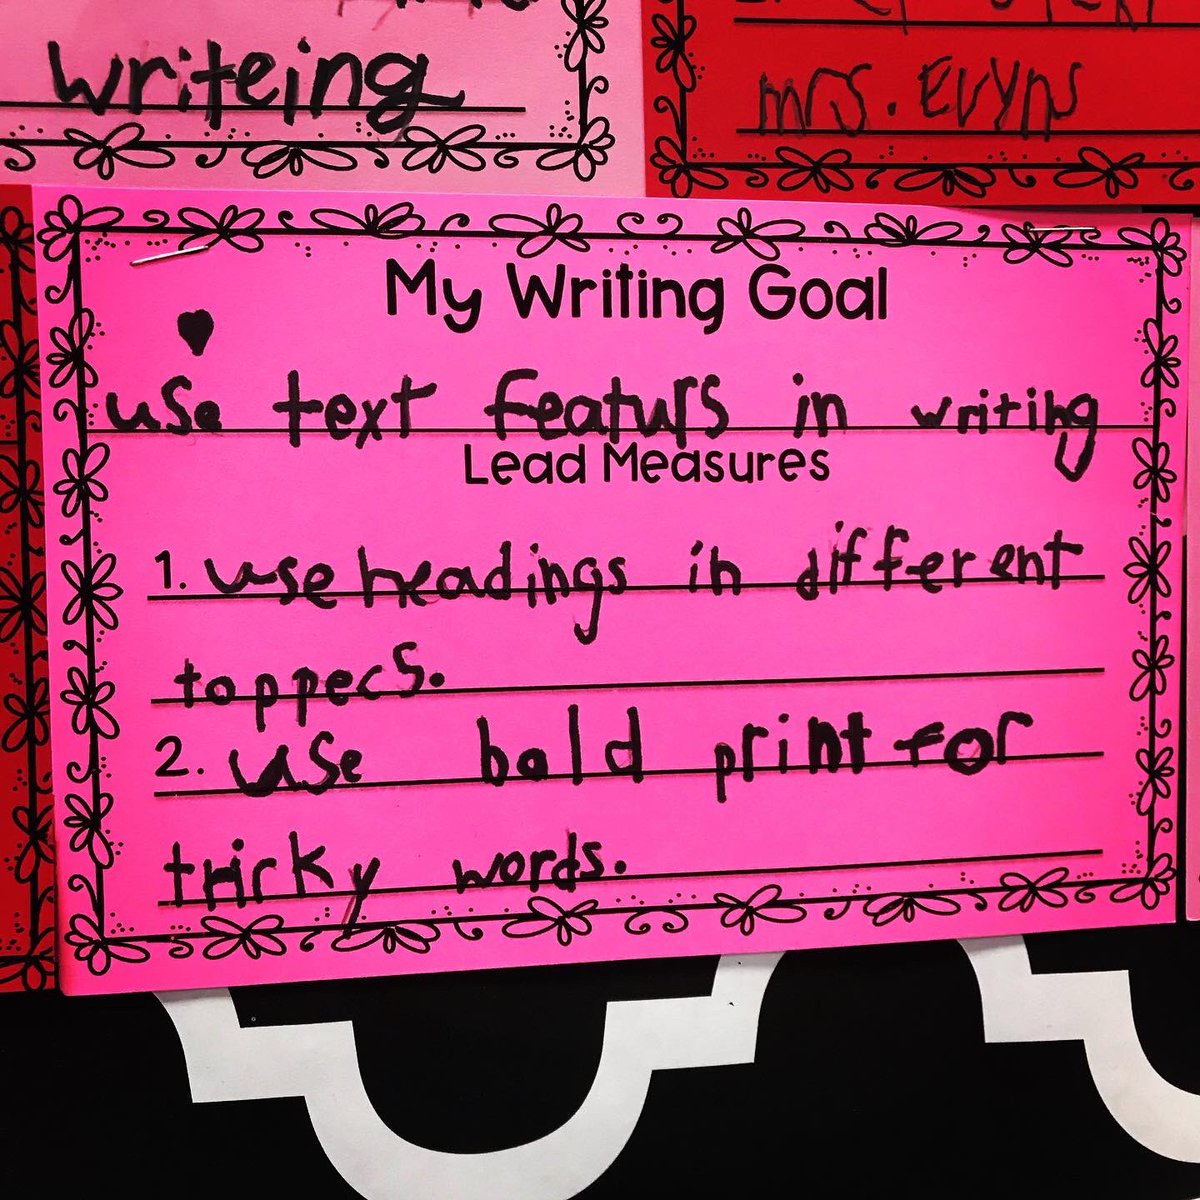 writeing
mrs. Evyns
My Writing Goal
use text featurs in writing
Lead Measures
1. use headings in different
toppecs.
2. use bold print for
tricky words.